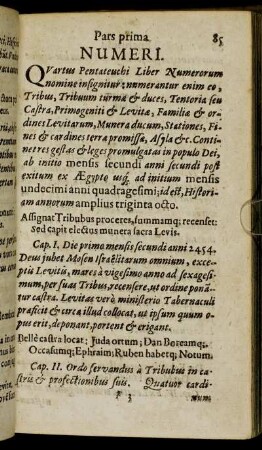 Pars prima. 85
NUMERI.
QVartus Pentateuchi Liber Numerorum
nomine insignitur: numerantur enim eo,
Tribus, Tribuum turmæ & duces, Tentoria seu
Castra, Primogeniti & Levitæ, Familiæ & or-
dines Levitarum, Munera ducum, Stationes, Fi-
nes & cardines terræ promissæ, Asyla &c. Conti-
net res gestas & leges promulgatas in populo Dei,
ab initio mensis secundi anni secundi post
exitum ex Ægypto usq; ad initium mensis
undecimi anni quadragesimi; id est, Histori-
am annorum amplius triginta octo.
Assignat Tribubus proceres, summamq; recenset:
Sed capit electus munera sacra Levis.
Cap. I. Die primo mensis secundi anni 2454.
Deus jubet Mosen Israëlitarum omnium, exce-
ptis Levitis, mares à vigesimo anno ad sexagesi-
mum, per suas Tribus, recensere, ut ordine ponã-
tur castra. Levitas verò ministerio Tabernaculi
præficit & circa illud collocat, ut ipsum quum o-
pus erit, deponant, portent & erigant.
Bellè castra locat: Juda ortum; Dan Boreamq;,
Occasumq; Ephraim; Ruben habetq; Notum.
Cap. II. Ordo servandus à Tribubus in ca-
stris & profectionibus suis. Quatuor cardi-
F 3 num